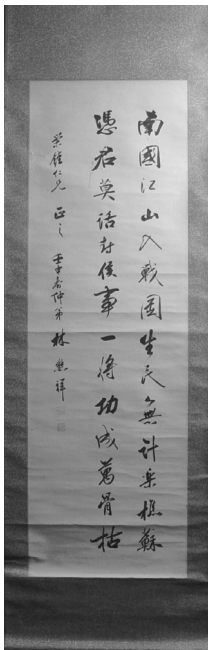 南國江山入戰圖生民無計樂樵蘇
憑君莫話封侯事一將功成萬骨枯
榮鐘仁兄 正之 壬子春仲弟 林熊祥